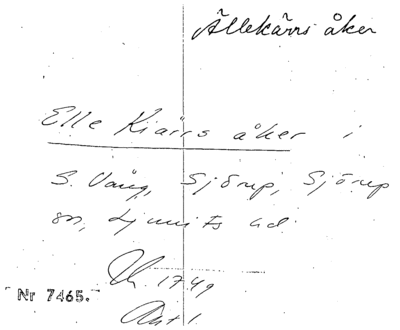 Ällekärrs åker
Elle Kiärrs åker i
S. Vång, Sjörup, Sjörup
sn, Ljunits hd.
1749
Nr 7465.
Akt 1.